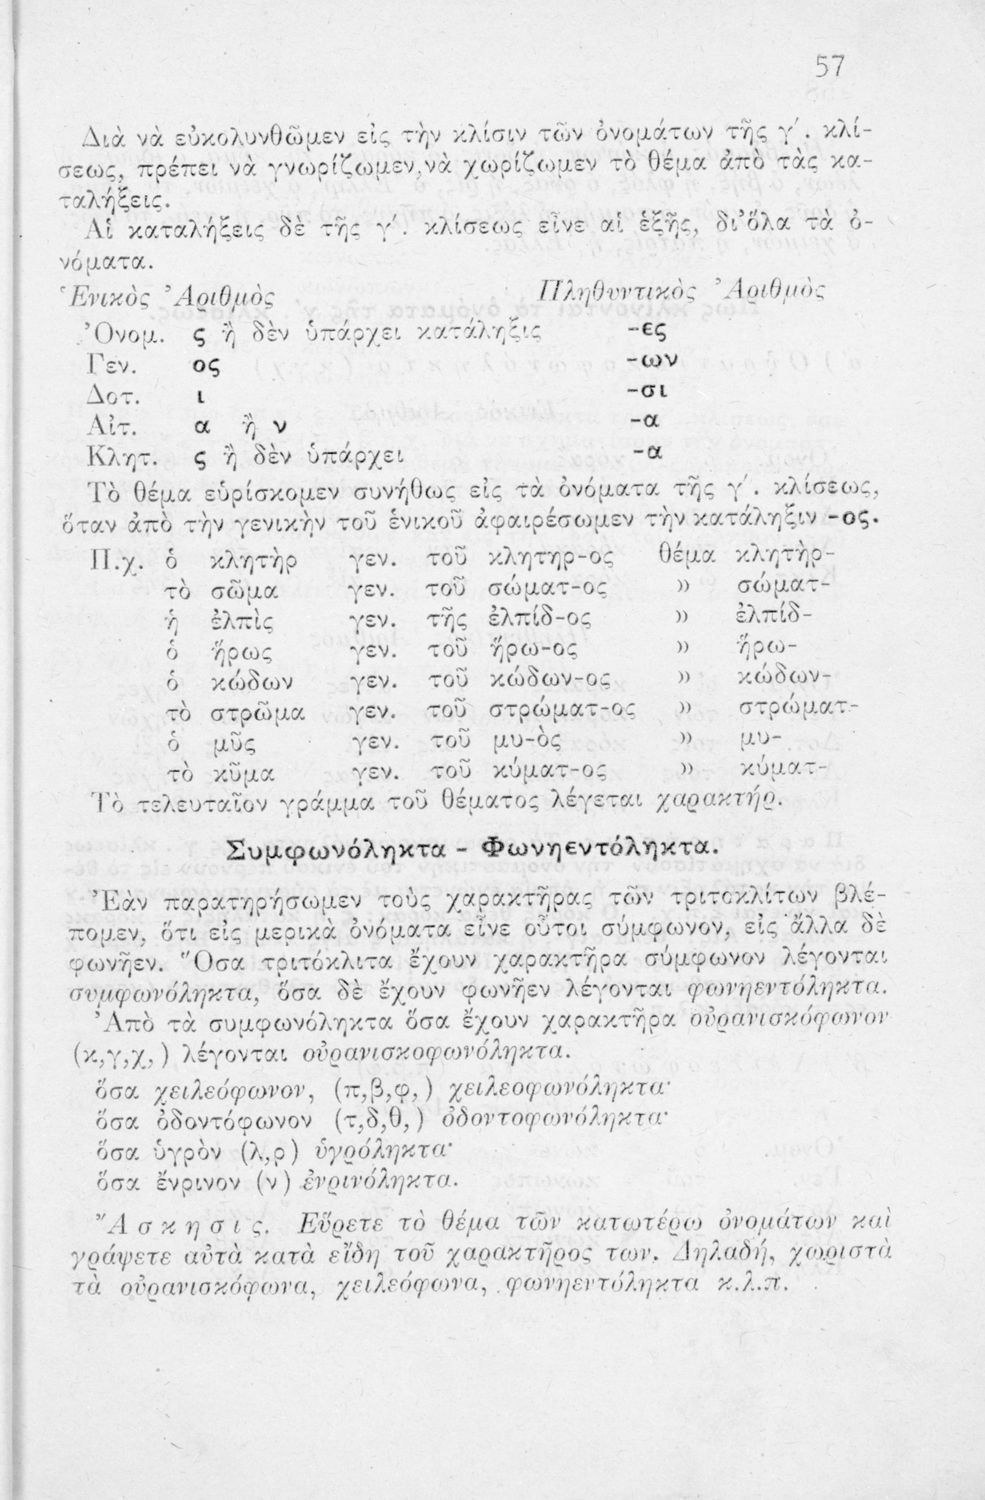 57
Διὰ νὰ εὐκολυνθῶμεν εἰς τὴν κλίσιν τῶν ὀνομάτων τῆς γ΄. κλί-
σεως, πρέπει νὰ γνωρίζωμεν,νὰ χωρίζωμεν τὸ θέμα ἀπὸ τὰς κα-
ταλήξεις.
Αἱ καταλήξεις δὲ τῆς γ΄. κλίσεως εἶνε αἱ ἑξῆς, δι᾿ὅλα τὰ ὀ-
νόματα.
Ἑνικὸς Ἀριθμὸς Πληθυντικὸς Ἀριθμὸς
Ὀνομ. ς ἢ δὲν ὑπάρχει κατάληξις -ες
Γεν. ος -ων
Δοτ. ι -σι
Αἰτ. α ἢ ν -α
Κλητ. ς ἢ δὲν ὑπάρχει -α
Τὸ θέμα εὑρίσκομεν συνήθως εἰς τὰ ὀνόματα τῆς γ΄. κλίσεως,
ὅταν ἀπὸ τὴν γενικὴν τοῦ ἑνικοῦ ἀφαιρέσωμεν τὴν κατάληξιν -ος.
Π.χ. ὁ κλητὴρ γεν. τοῦ κλητηρ-ος θέμα κλητὴρ-
τὸ σῶμα γεν. τοῦ σώματ-ος » σώματ-
ἡ ἐλπὶς γεν. τῆς ἐλπίδ-ος » ἐλπίδ-
ὁ ἥρως γεν. τοῦ ἥρω-ος » ἥρω-
ὁ κώδων γεν. τοῦ κώδων-ος » κώδων-
τὸ στρῶμα γεν. τοῦ στρώματ-ος » στρώματ-
ὁ μῦς γεν. τοῦ μυ-ὸς » μυ-
τὸ κῦμα γεν. τοῦ κύματ-ος » κύματ-
Τὸ τελευταῖον γράμμα τοῦ θέματος λέγεται χαρακτήρ.
Συμφωνόληκτα - Φωνηεντόληκτα.
Ἐὰν παρατηρήσωμεν τοὺς χαρακτῆρας τῶν τριτοκλίτων βλέ-
πομεν, ὅτι εἰς μερικὰ ὀνόματα εἶνε οὗτοι σύμφωνον, εἰς ἄλλα δὲ
φωνῆεν. Ὅσα τριτόκλιτα ἔχουν χαρακτῆρα σύμφωνον λέγονται
συμφωνόληκτα, ὅσα δὲ ἔχουν φωνῆεν λέγονται φωνηεντόληκτα.
Ἀπὸ τὰ συμφωνόληκτα ὅσα ἔχουν χαρακτῆρα οὐρανισκόφωνον
(κ,γ,χ,) λέγονται οὐρανισκοφωνόληκτα.
ὅσα χειλεόφωνον, (π,β,φ,) χειλεοφωνόληκτα·
ὅσα ὀδοντόφωνον (τ,δ,θ,) ὀδοντοφωνόληκτα·
ὅσα ὑγρὸν (λ,ρ) ὑγρόληκτα·
ὅσα ἔνρινον (ν) ἐνρινόληκτα.
Ἄσκησις. Εὕρετε τὸ θέμα τῶν κατωτέρω ὀνομάτων καὶ
γράψετε αὐτὰ κατὰ εἴδη τοῦ χαρακτῆρος των. Δηλαδή, χωριστὰ
τὰ οὐρανισκόφωνα, χειλεόφωνα, φωνηεντόληκτα κ.λ.π.